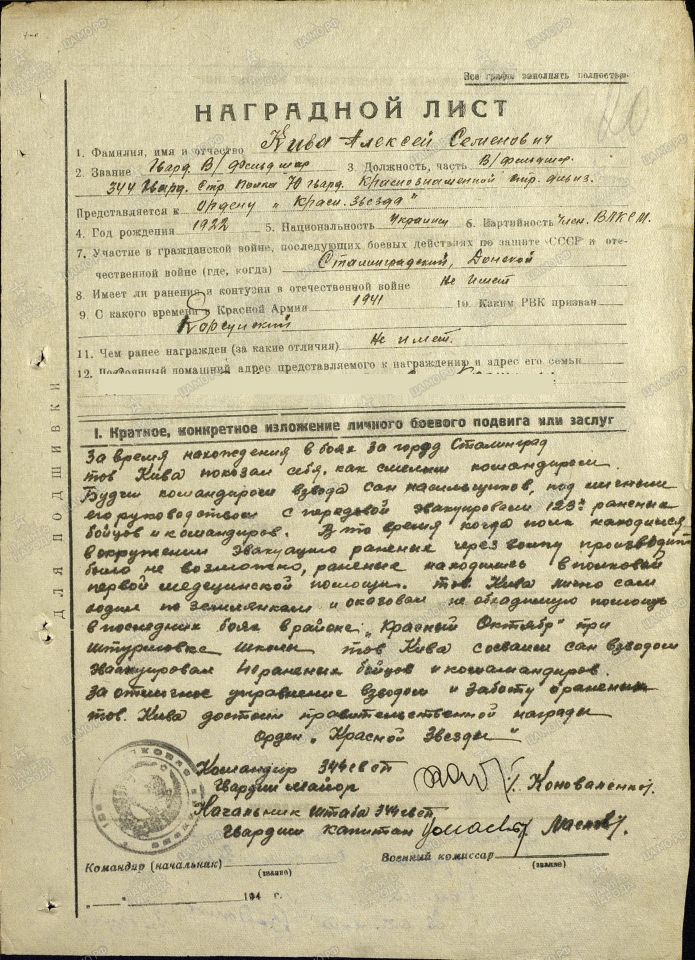 Все графы заполнять полностью
НАГРАДНОЙ ЛИСТ
1. Фамилия, имя и отчество Кива Алексей Семенович
2. Звание Гвард. В/фельдшер 3. Должность, часть В/фельдшер.
344 Гвард. Стр. Полка 70 гвард. Краснознаменной стр. дивиз.
Представляется к Ордену „Красн. Звезда"
4. Год рождения 1922 5. Национальность Украинец 6. Партийность Член. ВЛКСМ.
7. Участие в гражданской войне, последующих боевых действиях по защите СССР и оте-
чественной войне (где, когда) Сталинградский, Донской
8. Имеет ли ранения и контузии в отечественной войне Не имеет
9. С какого времени в Красной Армии 1941 10. Каким РВК призван
Корсунский
11. Чем ранее награжден (за какие отличия) Не имеет.
12. Постоянный домашний адрес представляемого к награждению и адрес его семьи
I. Краткое, конкретное изложение личного боевого подвига или заслуг
За время нахождения в боях за город Сталинград
тов Кива показал себя, как смелым командиром.
Будучи командиром взвода сан насильщиков, под личным
его руководством с передовой эвакуировали 123 раненые
бойцов и командиров. В то время когда полк находился
в окружении эвакуацию раненых через волгу производить
было не возможно, раненые находились в полковой
первой медецинской помощи. тов. Кива лично сам
ходил по землянкам и оказовал не обходимую помощь
в последних боях в районе „Красный Октябрь" при
штурмовке школы тов Кива со своим сан взводом
эвакуировал 40 раненых бойцов и командиров.
За отличное управление взводом и заботу о раненых
тов. Кива достоин правительственной награды
Орден „Красной Звезды"
Командир 344 гвсп
гвардии майор Коноваленко.
Начальник штаба 344 гвсп
гвардии капитан Маслов.
Командир (начальник) Военный комиссар
(звание) (звание)
„ " 194 г.
ДЛЯ ПОДШИВКИ
ЦАМО.РФ